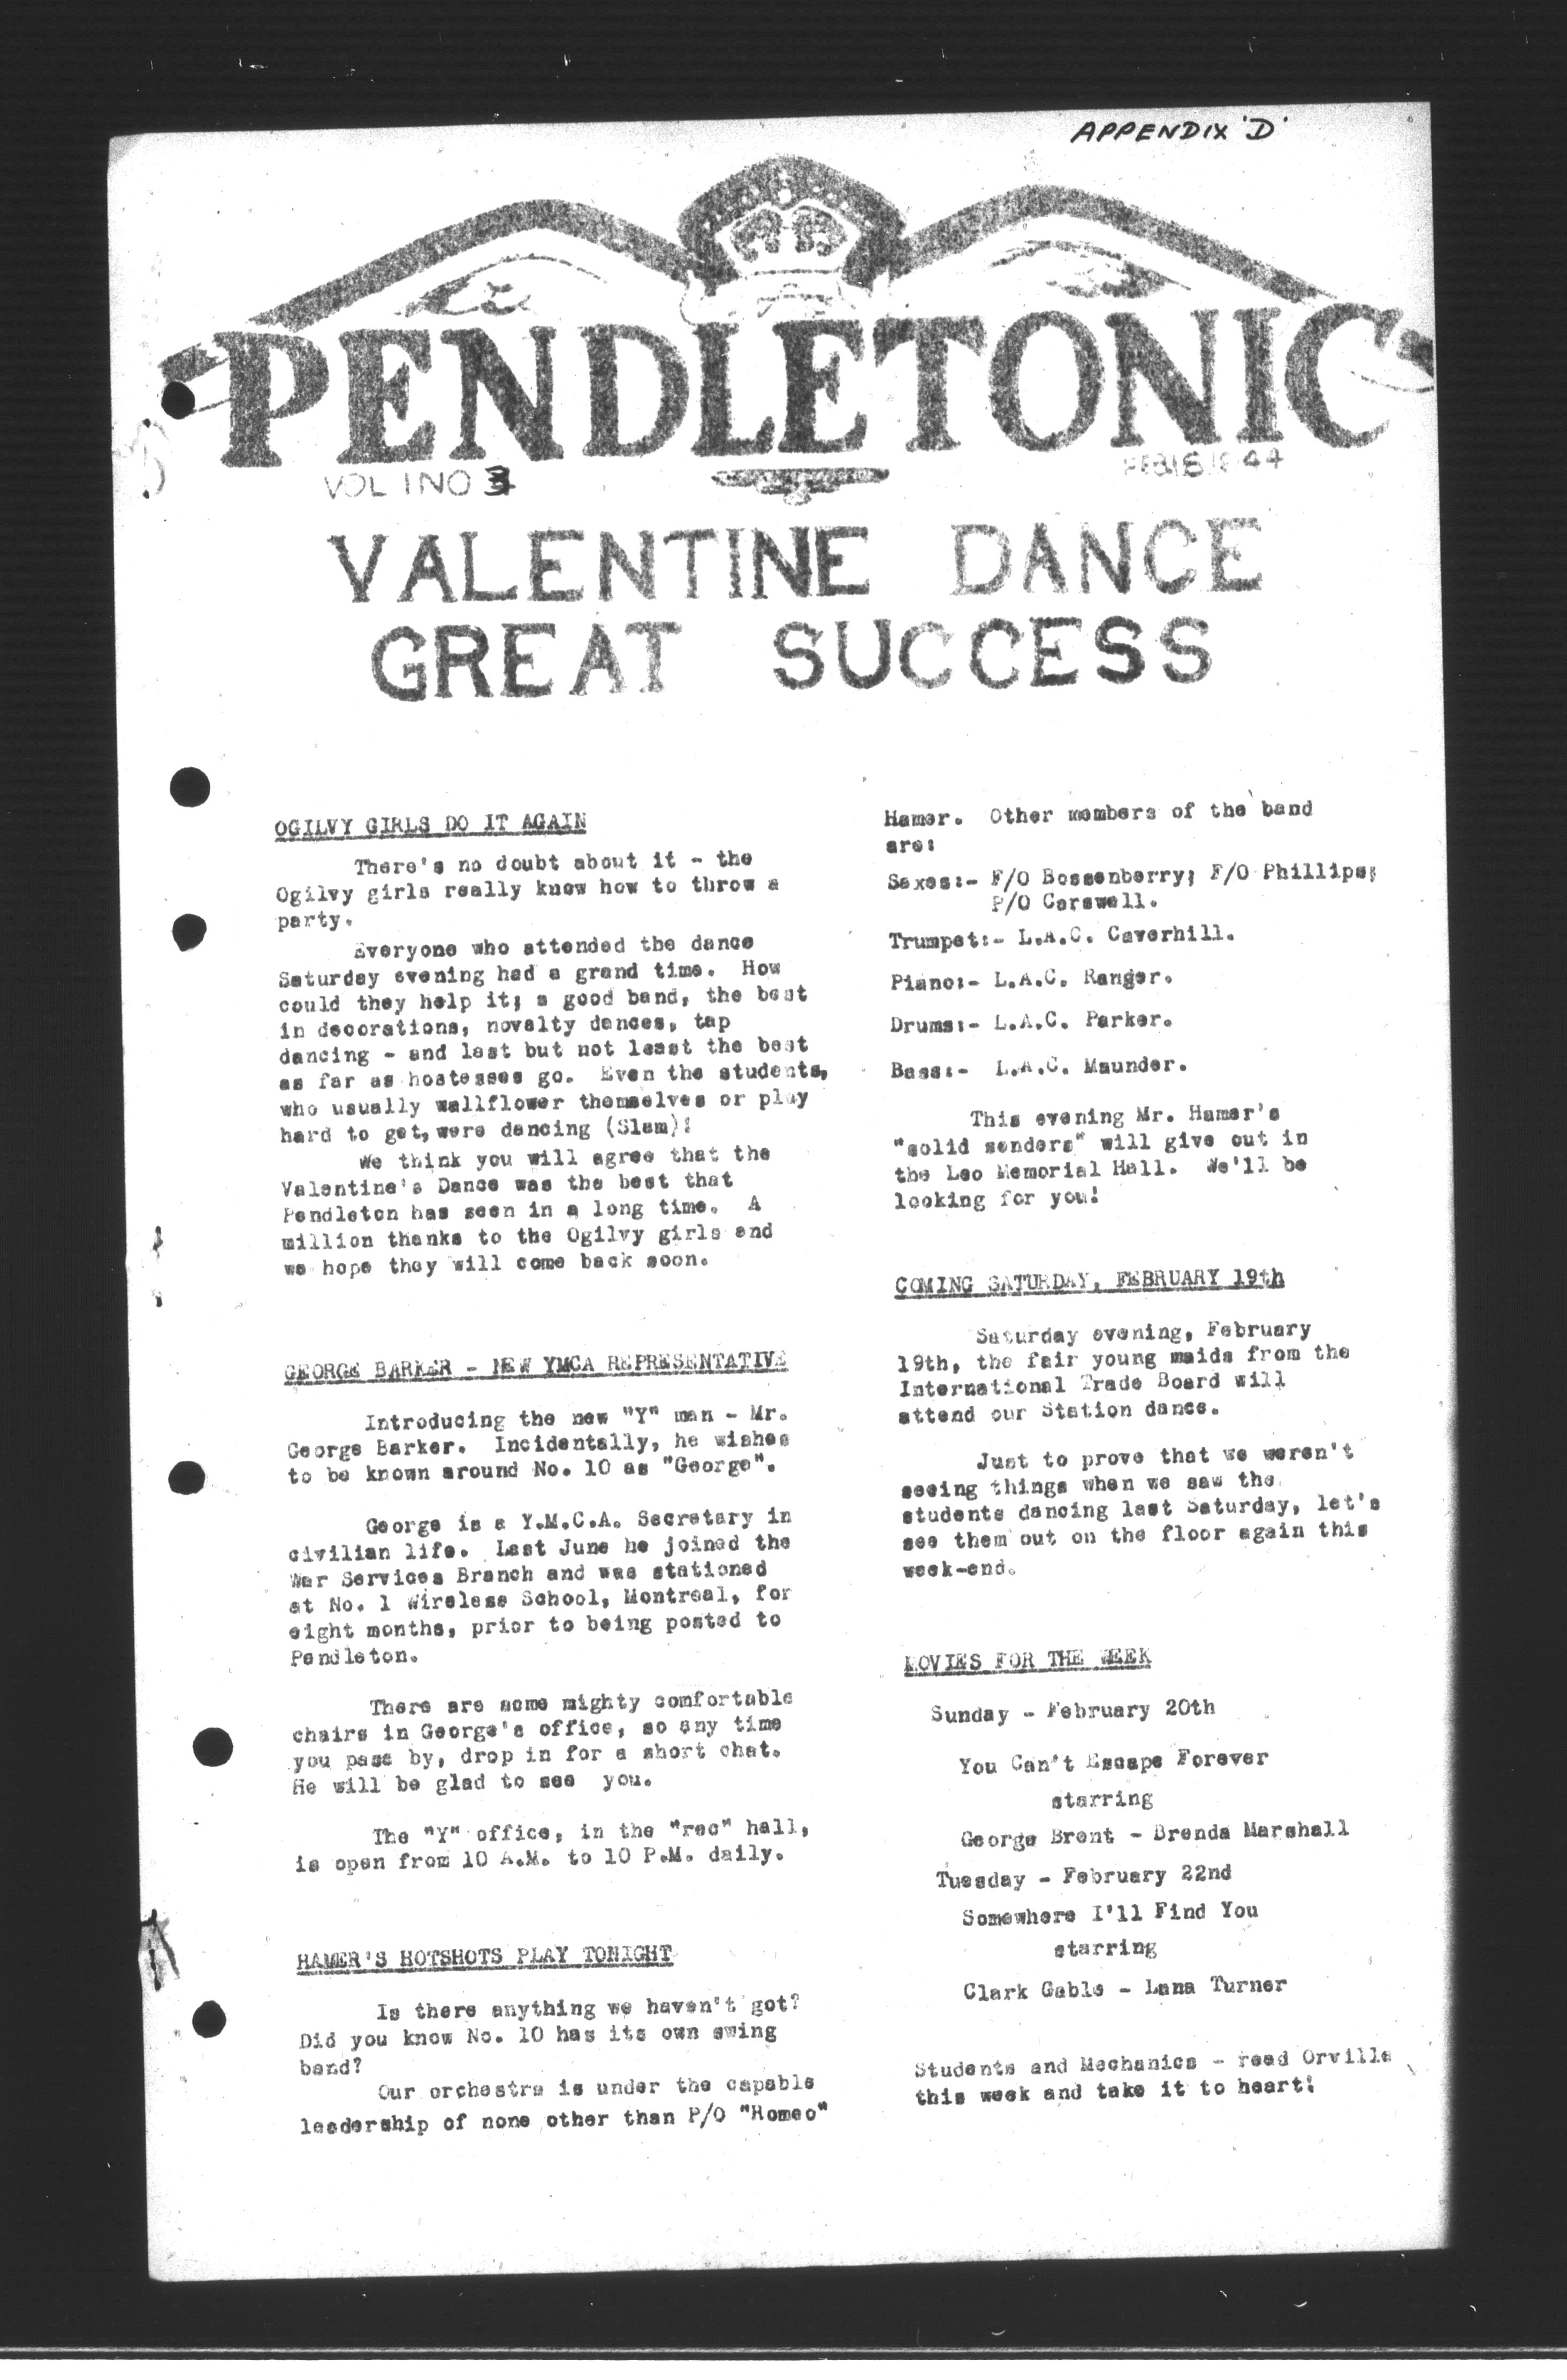 APPENDIX 'D'
PENDLETONIC
VOL 1 NO 3
FEB 16 1944
VALENTINE DANCE
GREAT SUCCESS
OGILVY GIRLS DO IT AGAIN
There's no doubt about it - the
Ogilvy girls really know how to throw a
party.
Everyone who attended the dance
Saturday evening had a grand time. How
could they help it; a good band, the best
in decorations, novalty dances, tap
dancing - and last but not least the best
as far as hostesses go. Even the students,
who usually wallflower themselves or play
hard to get, were dancing (Slam)!
We think you will agree that the
Valentine's Dance was the best that
Pendleton has seen in a long time. A
million thanks to the Ogilvy girls and
we hope they will come back soon.
GEORGE BARKER - NEW YMCA REPRESENTATIVE
Introducing the new "Y" man - Mr.
George Barker. Incidentally, he wishes
to be known around No. 10 as "George".
George is a Y.M.C.A. Secretary in
civilian life. Last June he joined the
War Services Branch and was stationed
at No. 1 Wireless School, Montreal, for
eight months, prior to being posted to
Pendleton.
There are some mighty comfortable
chairs in George's office, so any time
you pass by, drop in for a short chat.
He will be glad to see you.
The "Y" office, in the "rec" hall,
is open from 10 A.M. to 10 P.M. daily.
HAMER'S HOTSHOTS PLAY TONIGHT
Is there anything we haven't got?
Did you know No. 10 has its own swing
band?
Our orchestra is under the capable
leadership of none other than P/O "Romeo"
Hamer. Other members of the band
are:
Saxes:- F/O Bossenberry; F/O Phillips;
P/O Carswell.
Trumpet:- L.A.C. Caverhill.
Piano:- L.A.C. Ranger.
Drums:- L.A.C. Parker.
Bass:- L.A.C. Maunder.
This evening Mr. Hamer's
"solid senders" will give out in
the Leo Memorial Hall. We'll be
looking for you!
COMING SATURDAY, FEBRUARY 19th
Saturday evening, February
19th, the fair young maids from the
International Trade Board will
attend our Station dance.
Just to prove that we weren't
seeing things when we saw the
students dancing last Saturday, let's
see them out on the floor again this
week-end.
MOVIES FOR THE WEEK
Sunday - February 20th
You Can't Escape Forever
starring
George Brent - Brenda Marshall
Tuesday - February 22nd
Somewhere I'll Find You
starring
Clark Gable - Lana Turner
Students and Mechanics - read Orville
this week and take it to heart!